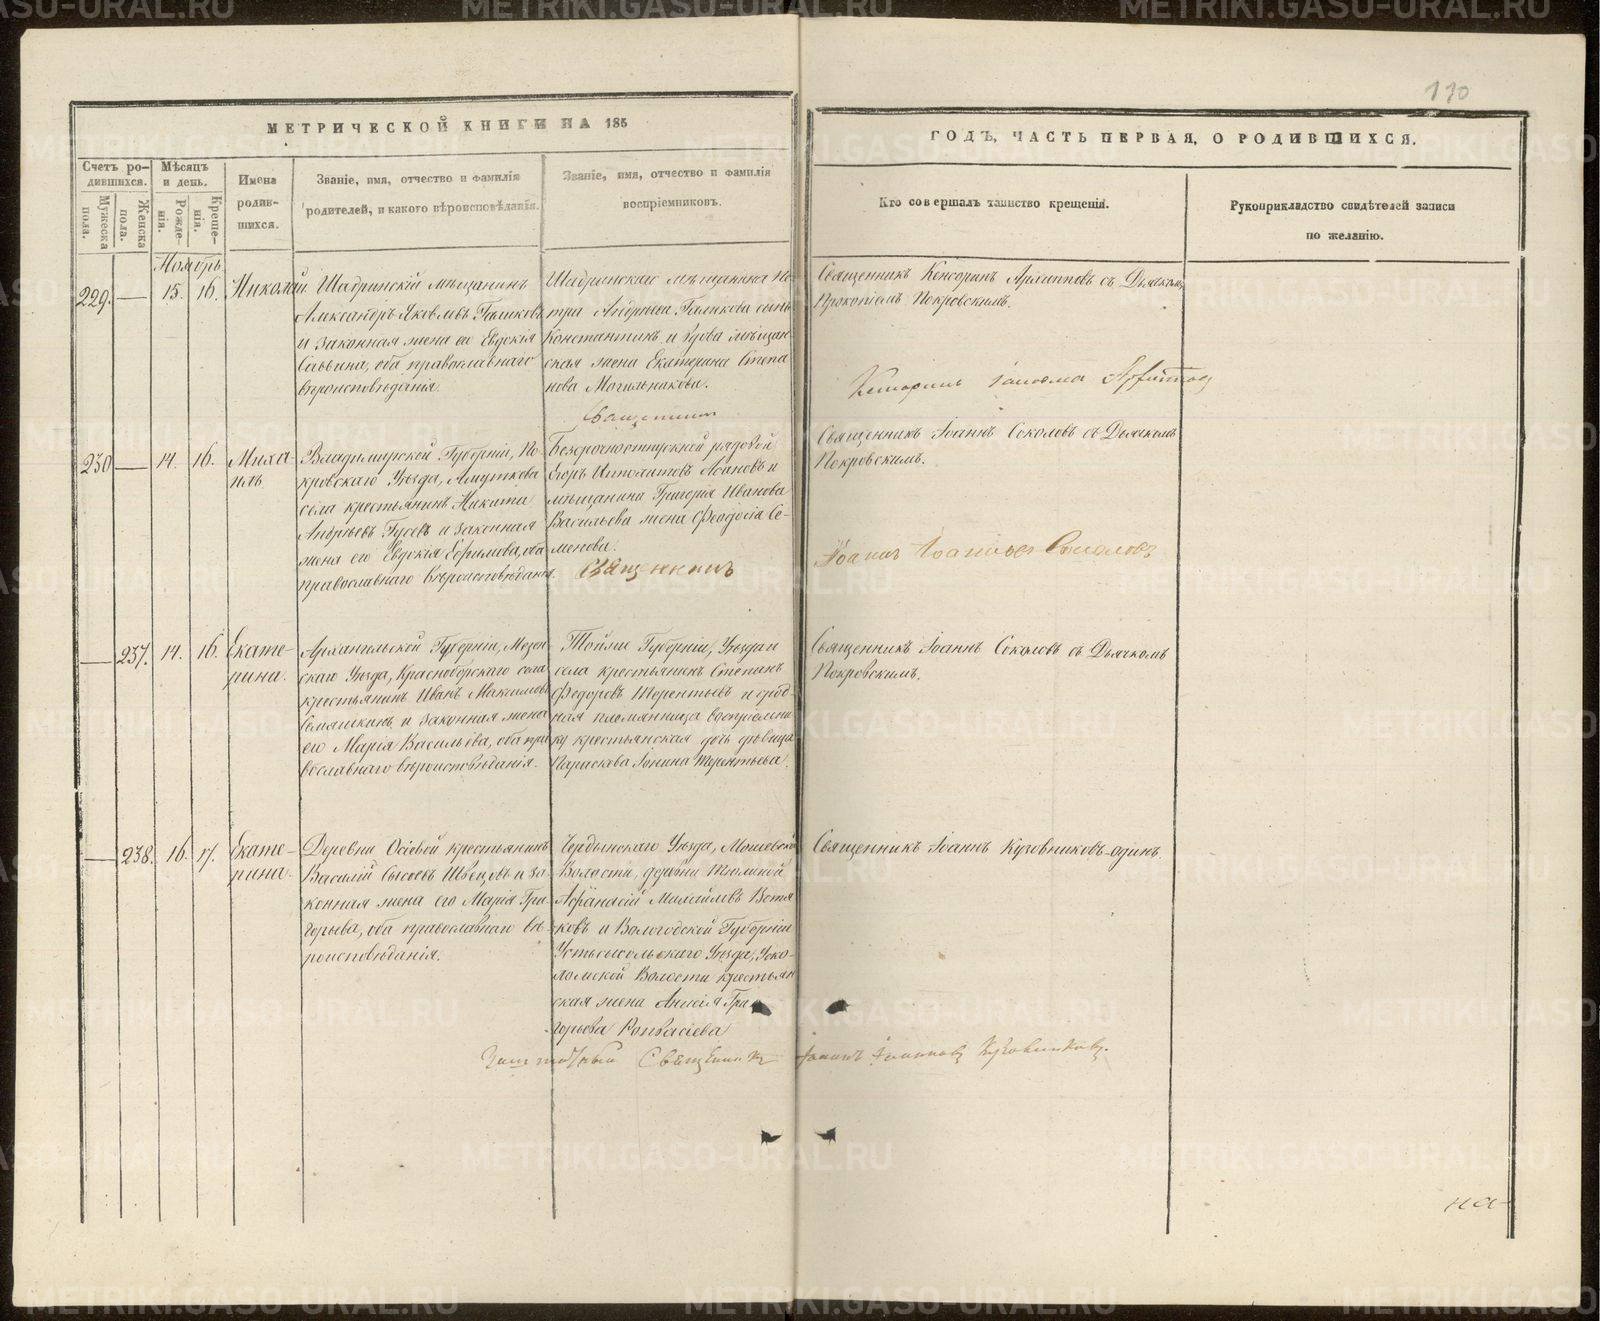 110
МЕТРИЧЕСКОЙ КНИГИ НА 185
ГОДЪ, ЧАСТЬ ПЕРВАЯ, О РОДИВШИХСЯ.
Счетъ ро-
дившихся.
Мужеска
пола.
Женска
пола.
Мѣсяцъ
и день.
Рожде-
нія.
Креще-
нія.
Имена
родив-
шихся.
Званіе, имя, отчество и фамилія
родителей, и какого вѣроисповѣданія.
Званіе, имя, отчество и фамилія
воспріемниковъ.
Кто совершалъ таинство крещенія.
Рукоприкладство свидѣтелей записи
по желанію.
Ноябрь
229. — 15. 16. Николай.
Шадринскій мѣщанинъ
Александръ Яковлевъ Галиковъ
и законная жена его Евдокія
Саввина, оба православнаго
вѣроисповѣданія.
Шадринскаго мѣщанина Пе-
тра Андреева Галикова сынъ
Константинъ и вдова мѣщан-
ская жена Екатерина Степа
нова Могильникова.
Священникъ
Священникъ Кенсоринъ Архиповъ съ Дьячкомъ
Прокопіемъ Покровскимъ.
Кенсоринъ
230 — 14. 16. Миха-
илъ
Владимирской Губерніи, По-
кровскаго Уѣзда,
села крестьянинъ Никита
Андреевъ Гусевъ и законная
жена его Евдокія Ефимова, оба
православнаго вѣроисповѣданія.
Безсрочноотпускной рядовой
Егоръ Ипполитовъ и
мѣщанина Григорія Иванова
Васильева жена Феодосія Се-
менова.
Священникъ
Священникъ Іоаннъ Соколовъ съ Дьячкомъ
Покровскимъ.
Іоаннъ Іоанновъ Соколовъ
— 237. 14. 16. Екате-
рина.
Архангельской Губерніи, Мезен
скаго Уѣзда, Красноборскаго села
крестьянинъ Иванъ Максимовъ
Семяшкинъ и законная жена
его Марія Васильева, оба пра
вославнаго вѣроисповѣданія.
Тойже Губерніи, Уѣзда и
села крестьянинъ Степанъ
Федоровъ Терентьевъ и род-
ная племянница воспріемни
ку крестьянская дочь дѣвица
Параскева Іонина Терентьева.
Священникъ Іоаннъ Соколовъ съ Дьячкомъ
Покровскимъ.
— 238. 16. 17. Екате-
рина.
Деревни Осіевой крестьянинъ
Василій Сысоевъ Швецовъ и за-
конная жена его Марія Гри
горьева, оба православнаго вѣ-
роисповѣданія.
Чердынскаго Уѣзда, Мошевской
Волости, деревни Тюлиной
Афанасій Михайловъ Вотя
ковъ и Вологодской Губерніи
Устьсысольскаго Уѣзда,
Волости крестьян
ская жена Анисія Гри
горьева
Священникъ Іоаннъ Кузовниковъ-одинъ.
Заштатный Священникъ Іоаннъ Іоанновъ Кузовниковъ.
на-
METRIKI.GASO-URAL.RU